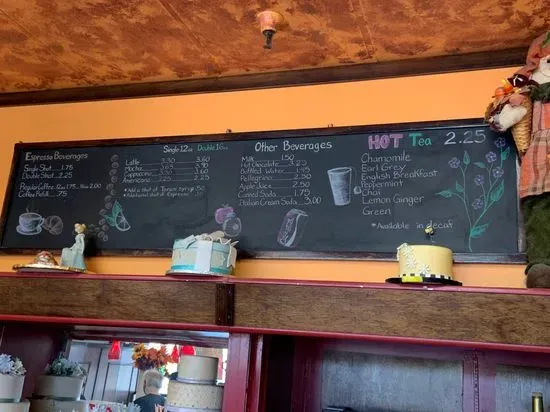 Espresso Beverages
Single Shot 1.75
Double Shot 2.25
Regular Coffee 12oz 1.75
Coffee Refill
Single 12oz Double 16oz
Latte 3.30 3.60
Mocha 3.65 3.90
Cappuccino
Americano
*Add a Shot of Torani Syrup .50
*Additional Shot of Espresso
Other Beverages
Milk 1.50
Hot Chocolate
Bottled Water
Pellegrino
Apple Juice 2.50
Canned Soda 1.75
Italian Cream Soda 3.00
HOT Tea 2.25
Chamomile
Earl Grey
English Breakfast
Peppermint
Chai
Lemon Ginger
Green
*Available in decaf